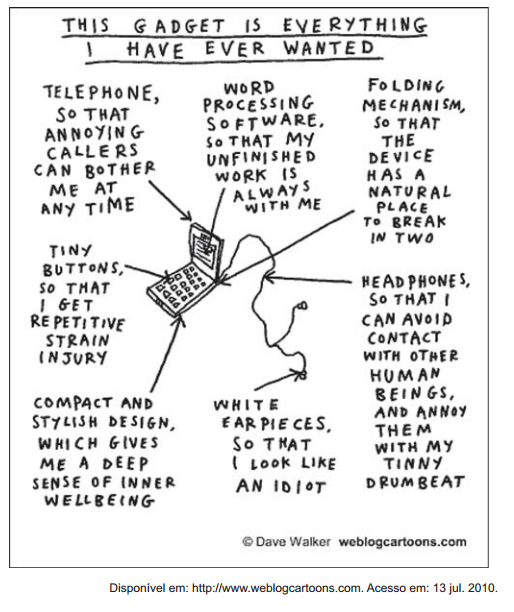 THIS GADGET IS EVERYTHING
I HAVE EVER WANTED
TELEPHONE,
SO THAT
ANNOYING
CALLERS
CAN BOTHER
ME AT
ANY TIME
WORD
PROCESSING
SOFTWARE,
SO THAT MY
UNFINISHED
WORK IS
ALWAYS
WITH ME
FOLDING
MECHANISM,
SO THAT
THE
DEVICE
HAS A
NATURAL
PLACE
TO BREAK
IN TWO
TINY
BUTTONS,
SO THAT
I GET
REPETITIVE
STRAIN
INJURY
HEADPHONES,
SO THAT I
CAN AVOID
CONTACT
WITH OTHER
HUMAN
BEINGS,
AND ANNOY
THEM
WITH MY
TINNY
DRUMBEAT
COMPACT AND
STYLISH DESIGN,
WHICH GIVES
ME A DEEP
SENSE OF INNER
WELLBEING
WHITE
EARPIECES,
SO THAT
I LOOK LIKE
AN IDIOT
© Dave Walker weblogcartoons.com
Disponível em: http://www.weblogcartoons.com. Acesso em: 13 jul. 2010.